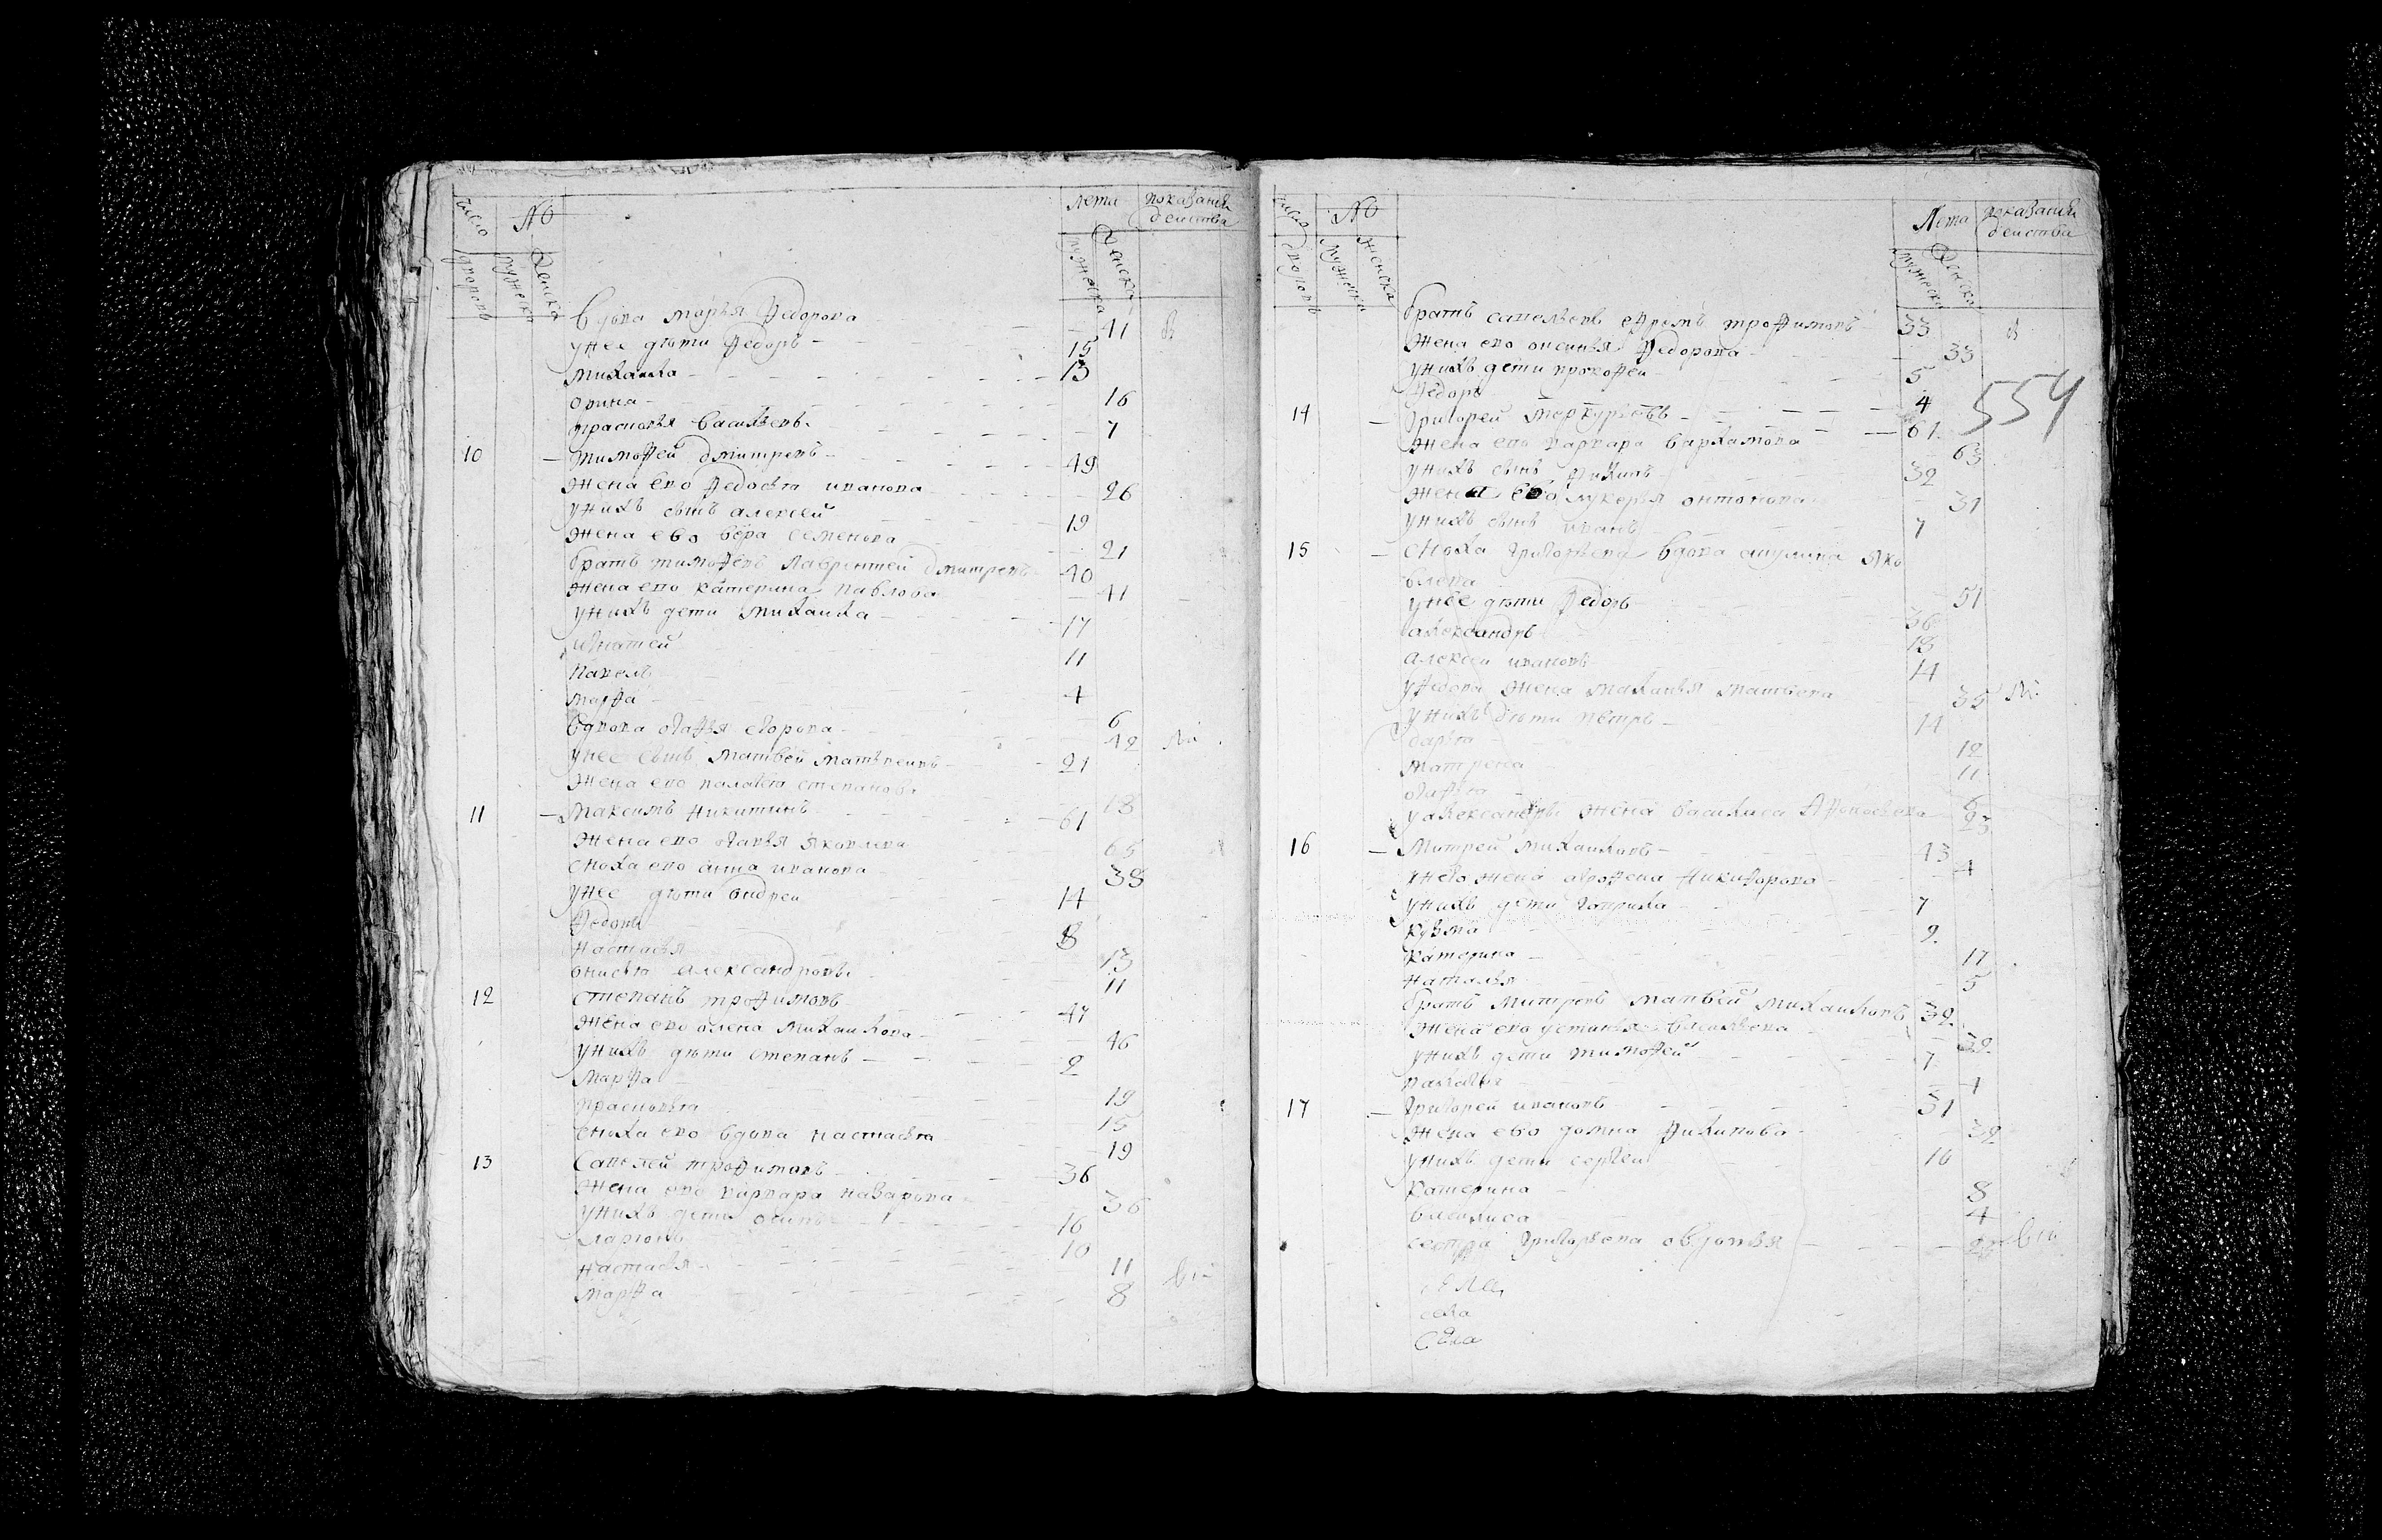 число дворовъ № мужеска женска лета мужеска женска показания действа
вдова марья Федорова 41 в
унее дѣти Федоръ 15
михаила 13
орина 16
прасковья васильевы 7
10 тимофей дмитревъ 49
жена ево Федосья иванова 26
унихъ сынъ алексей 19
жена ево вера семенова 21
братъ тимофевъ лаврентей дмитревъ 40
жена ево катерина павлова 41
унихъ дети михаила 17
игнатей 11
павелъ 4
марфа 6
вдова агафья егорова 42
унее сынъ матвей матвеивъ 21
жена ево палагея степанова 18
11 максимъ никитинъ 61
жена ево яковлева 65
сноха ево анна иванова 38
унее дѣти андреи 14
Федоръ 8
настасья 13
анисья александровы 11
12 степанъ трофимовъ 47
жена ево олена михаилова 46
унихъ дѣти степанъ 2
марфа 19
прасковья 15
сноха ево вдова настасья 19
13 савелей трофимовъ 36
жена ево варвара назарова 36
унихъ дети осипъ 16
ларионъ 10
настасья 11
марфа 8
число дворовъ № мужеска женска Лета мужеска женска показания действа
554
братъ савельевъ ефремъ трофимовъ 33 в
жена ево аксинья Федорова 33
унихъ дети прокофеи 5
Федоръ 4
14 григорей меркурьевъ 61
жена ево варвара варламова 63
унихъ сынъ филипъ 32
жена ево лукерья онтонова 31
унихъ сынъ иванъ 7
15 сноха григорьева вдова акулина яко
влева 51
унее дѣти Федоръ 36
александръ 18
алексеи ивановы 14
уФедора жена маланья матвеева 35
унихъ дѣти петръ 14
дарья 12
матрена 11
агафья 6
уалександры жена василиса Афонасьева 23
16 митреи михаиловъ 43
унево жена аграфена никифорова 4
унихъ дети гаврила 7
кузма 2
катерина 17
наталья 5
братъ митревъ матвей михаиловъ 32
жена ево устинья васильева 32
унихъ дети тимофей 7
палагея 1
17 григореи ивановъ 31
жена ево домна филипова 32
унихъ дети сергеи 10
катерина 8
василиса 4
сестра григорьева овдотья
села
села